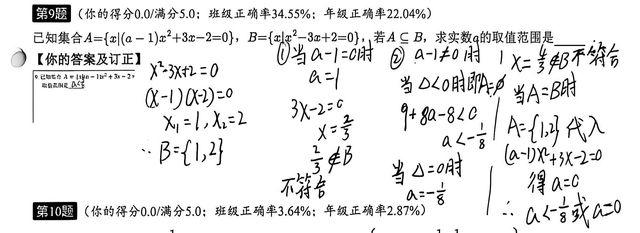 第9题 (你的得分0.0/满分5.0；班级正确率34.55%；年级正确率22.04%)
已知集合A={x|(a−1)x²+3x−2=0}，B={x|x²−3x+2=0}，若A⊆B，求实数a的取值范围是
【你的答案及订正】
x²-3x+2=0
(x-1)(x-2)=0
x₁=1, x₂=2
∴ B={1,2}
① 当a-1=0时
a=1
3x-2=0
x=2/3
2/3∉B
不符合
② a-1≠0时
当△<0时即A=∅
9+8a-8<0
a<-1/8
当△=0时
a=-1/8
x=4/3∉B不符合
当A=B时
A={1,2}代入
(a-1)x²+3x-2=0
得a=0
∴ a<-1/8或a=0
第10题 (你的得分0.0/满分5.0；班级正确率3.64%；年级正确率2.87%)